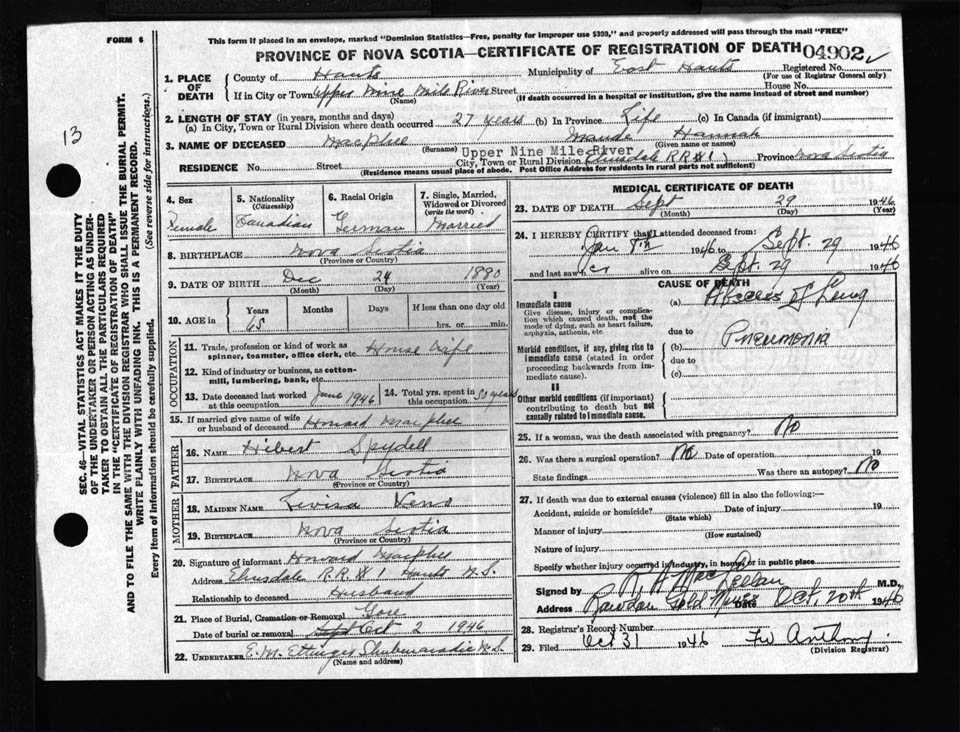 FORM 6
This form if placed in an envelope, marked "Dominion Statistics—Free, penalty for improper use $300," and properly addressed will pass through the mail "FREE"
PROVINCE OF NOVA SCOTIA—CERTIFICATE OF REGISTRATION OF DEATH 04902
13
SEC. 46—VITAL STATISTICS ACT MAKES IT THE DUTY
OF THE UNDERTAKER OR PERSON ACTING AS UNDER-
TAKER TO OBTAIN ALL THE PARTICULARS REQUIRED
IN THE "CERTIFICATE OF REGISTRATION OF DEATH"
AND TO FILE THE SAME WITH THE DIVISION REGISTRAR WHO SHALL ISSUE THE BURIAL PERMIT.
WRITE PLAINLY WITH UNFADING INK. THIS IS A PERMANENT RECORD.
Every item of information should be carefully supplied. (See reverse side for instructions.)
1. PLACE OF DEATH
County of Hants Municipality of East Hants Registered No.
(For use of Registrar General only)
If in City or Town Upper Nine Mile River Street House No.
(Name) (If death occurred in a hospital or institution, give the name instead of street and number)
2. LENGTH OF STAY (in years, months and days)
(a) In City, Town or Rural Division where death occurred 27 years (b) In Province Life (c) In Canada (if immigrant)
3. NAME OF DECEASED MacPhee Maude Hannah
(Surname) (Given name or names)
Upper Nine Mile River
RESIDENCE No. Street City, Town or Rural Division Elmsdale R.R #1 Province Nova Scotia
(Residence means usual place of abode. Post Office Address for residents in rural parts not sufficient)
4. Sex
Female
5. Nationality
(Citizenship)
Canadian
6. Racial Origin
German
7. Single, Married, Widowed or Divorced
(write the word)
Married
8. BIRTHPLACE Nova Scotia
(Province or Country)
9. DATE OF BIRTH Dec 24 1880
(Month) (Day) (Year)
10. AGE in Years Months Days If less than one day old
65 hrs. or min.
OCCUPATION
11. Trade, profession or kind of work as
spinner, teamster, office clerk, etc. House Wife
12. Kind of industry or business, as cotton-
mill, lumbering, bank, etc.
13. Date deceased last worked at this occupation June 1946
14. Total yrs. spent in this occupation 50 years
15. If married give name of wife
or husband of deceased Howard MacPhee
FATHER
16. NAME Hibert Spydell
17. BIRTHPLACE Nova Scotia
(Province or Country)
MOTHER
18. MAIDEN NAME Livisa
19. BIRTHPLACE Nova Scotia
(Province or Country)
20. Signature of informant Howard MacPhee
Address Elmsdale R.R #1 Hants N.S.
Relationship to deceased Husband
21. Place of Burial, Cremation or Removal Gore
Date of burial or removal Sept Oct 2 1946
22. UNDERTAKER E. M. Ettinger Shubenacadie N.S.
(Name and address)
MEDICAL CERTIFICATE OF DEATH
23. DATE OF DEATH Sept 29 1946
(Month) (Day) (Year)
24. I HEREBY CERTIFY that I attended deceased from:
Jan 1946 to Sept. 29 1946
and last saw her alive on Sept. 29 1946
CAUSE OF DEATH
I
Immediate cause
Give disease, injury or complica-
tion which caused death, not the
mode of dying, such as heart failure,
asphyxia, asthenia, etc
(a) Abscess of Lung
due to
Morbid conditions, if any, giving rise to
immediate cause (stated in order
proceeding backwards from im-
mediate cause).
(b) Pneumonia
due to
(c)
II
Other morbid conditions (if important)
contributing to death but not
causally related to immediate cause.
25. If a woman, was the death associated with pregnancy? No
26. Was there a surgical operation? No Date of operation 19
State findings Was there an autopsy? No
27. If death was due to external causes (violence) fill in also the following:—
Accident, suicide or homicide? Date of injury 19
(State which)
Manner of injury
(How sustained)
Nature of injury
Specify whether injury occurred in industry, in home, or in public place
Signed by R. A. MacLellan M.D.
Address Rawdon Gold Mines Date Oct. 20th 1946
28. Registrar's Record Number
29. Filed Oct 31 1946 F W Anthony
(Division Registrar)